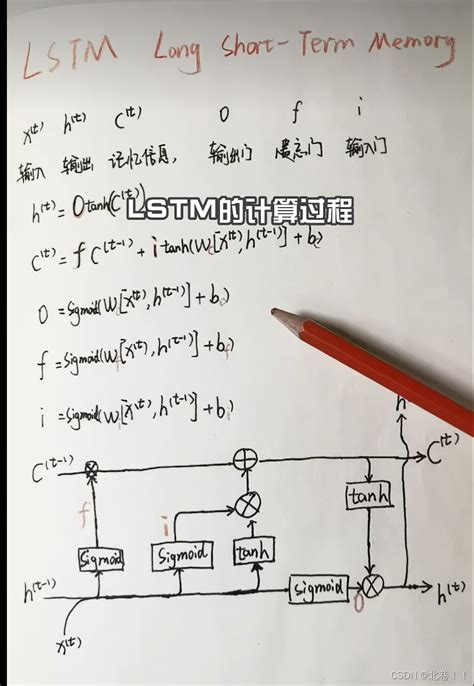 LSTM Long Short-Term Memory
x(t) h(t) C(t) O f i
输入 输出 记忆信息, 输出门 遗忘门 输入门
h(t) = O tanh(C(t))
LSTM的计算过程
C(t) = f C(t-1) + i tanh(Wc[x(t), h(t-1)] + bc)
O = Sigmoid(Wo[x(t), h(t-1)] + bo)
f = Sigmoid(Wf[x(t), h(t-1)] + bf)
i = Sigmoid(Wi[x(t), h(t-1)] + bi)
h
C(t-1) C(t)
tanh
f i
Sigmoid Sigmoid tanh
h(t-1) sigmoid O h(t)
x(t)
CSDN @北巷！！